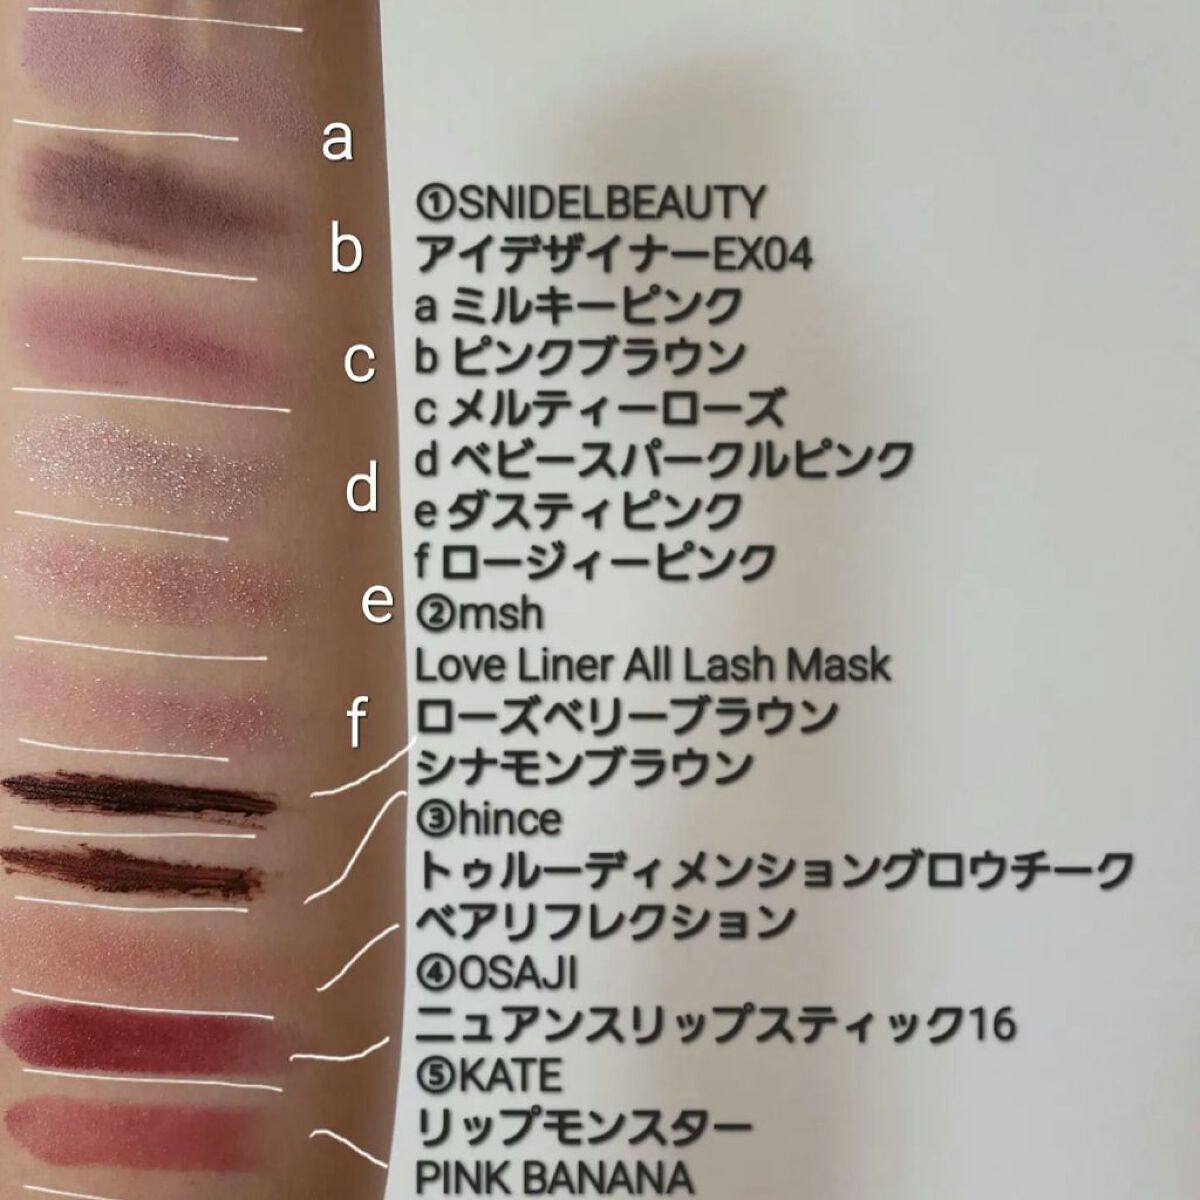 a
b
c
d
e
f
①SNIDELBEAUTY
アイデザイナーEX04
a ミルキーピンク
b ピンクブラウン
c メルティーローズ
d ベビースパークルピンク
e ダスティピンク
f ロージィーピンク
②msh
Love Liner All Lash Mask
ローズベリーブラウン
シナモンブラウン
③hince
トゥルーディメンショングロウチーク
ベアリフレクション
④OSAJI
ニュアンスリップスティック16
⑤KATE
リップモンスター
PINK BANANA